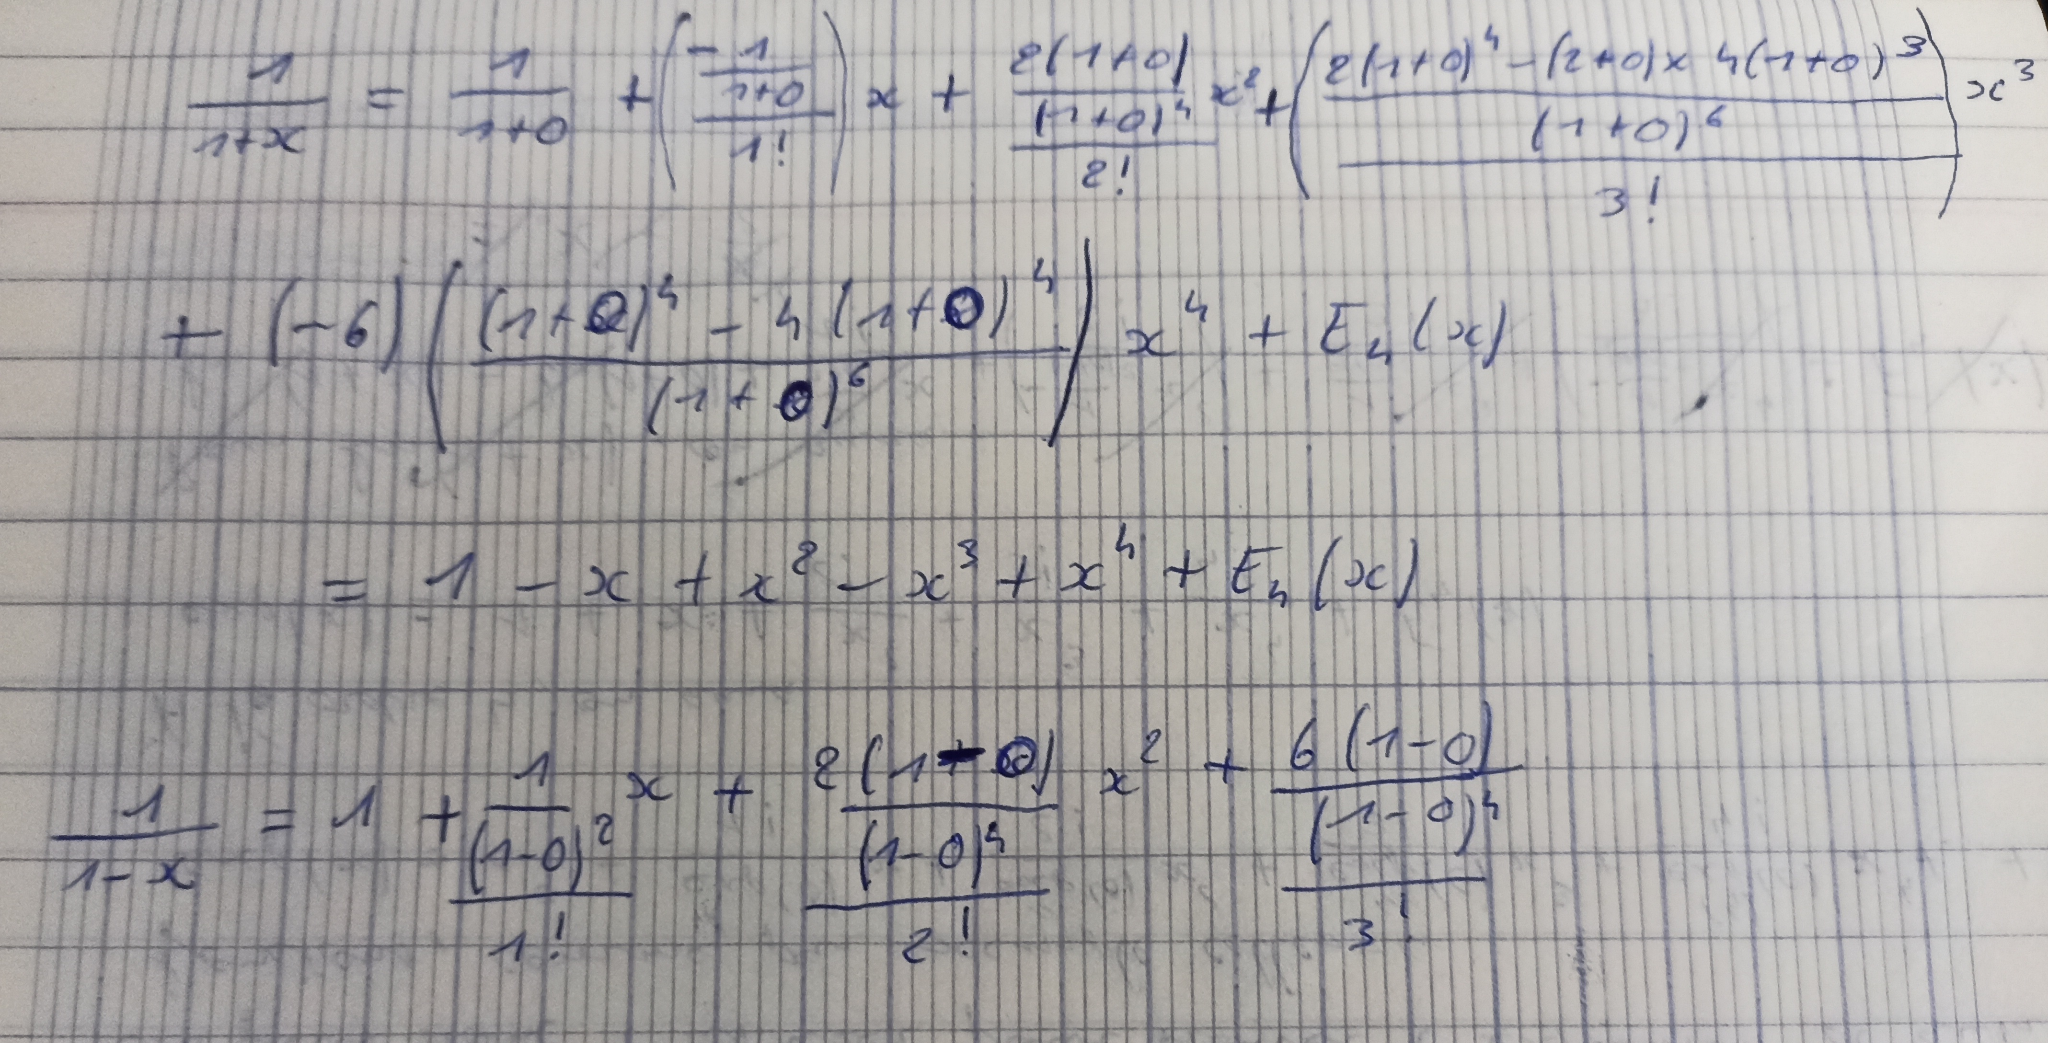 1/(1+x) = 1/(1+0) + ((-1/(1+0))/1!) x + ((2(1+0)/(1+0)^4)/2!) x^2 + (((2(1+0)^4 - (2+0)x 4(1+0)^3)/(1+0)^6)/3!) x^3
+ (-6) (((1+0)^4 - 4(1+0)^4)/(1+0)^6) x^4 + E_4(x)
= 1 - x + x^2 - x^3 + x^4 + E_4(x)
1/(1-x) = 1 + ((1/(1-0)^2)/1!) x + ((2(1-0)/(1-0)^4)/2!) x^2 + ((6(1-0)/(1-0)^4)/3!)